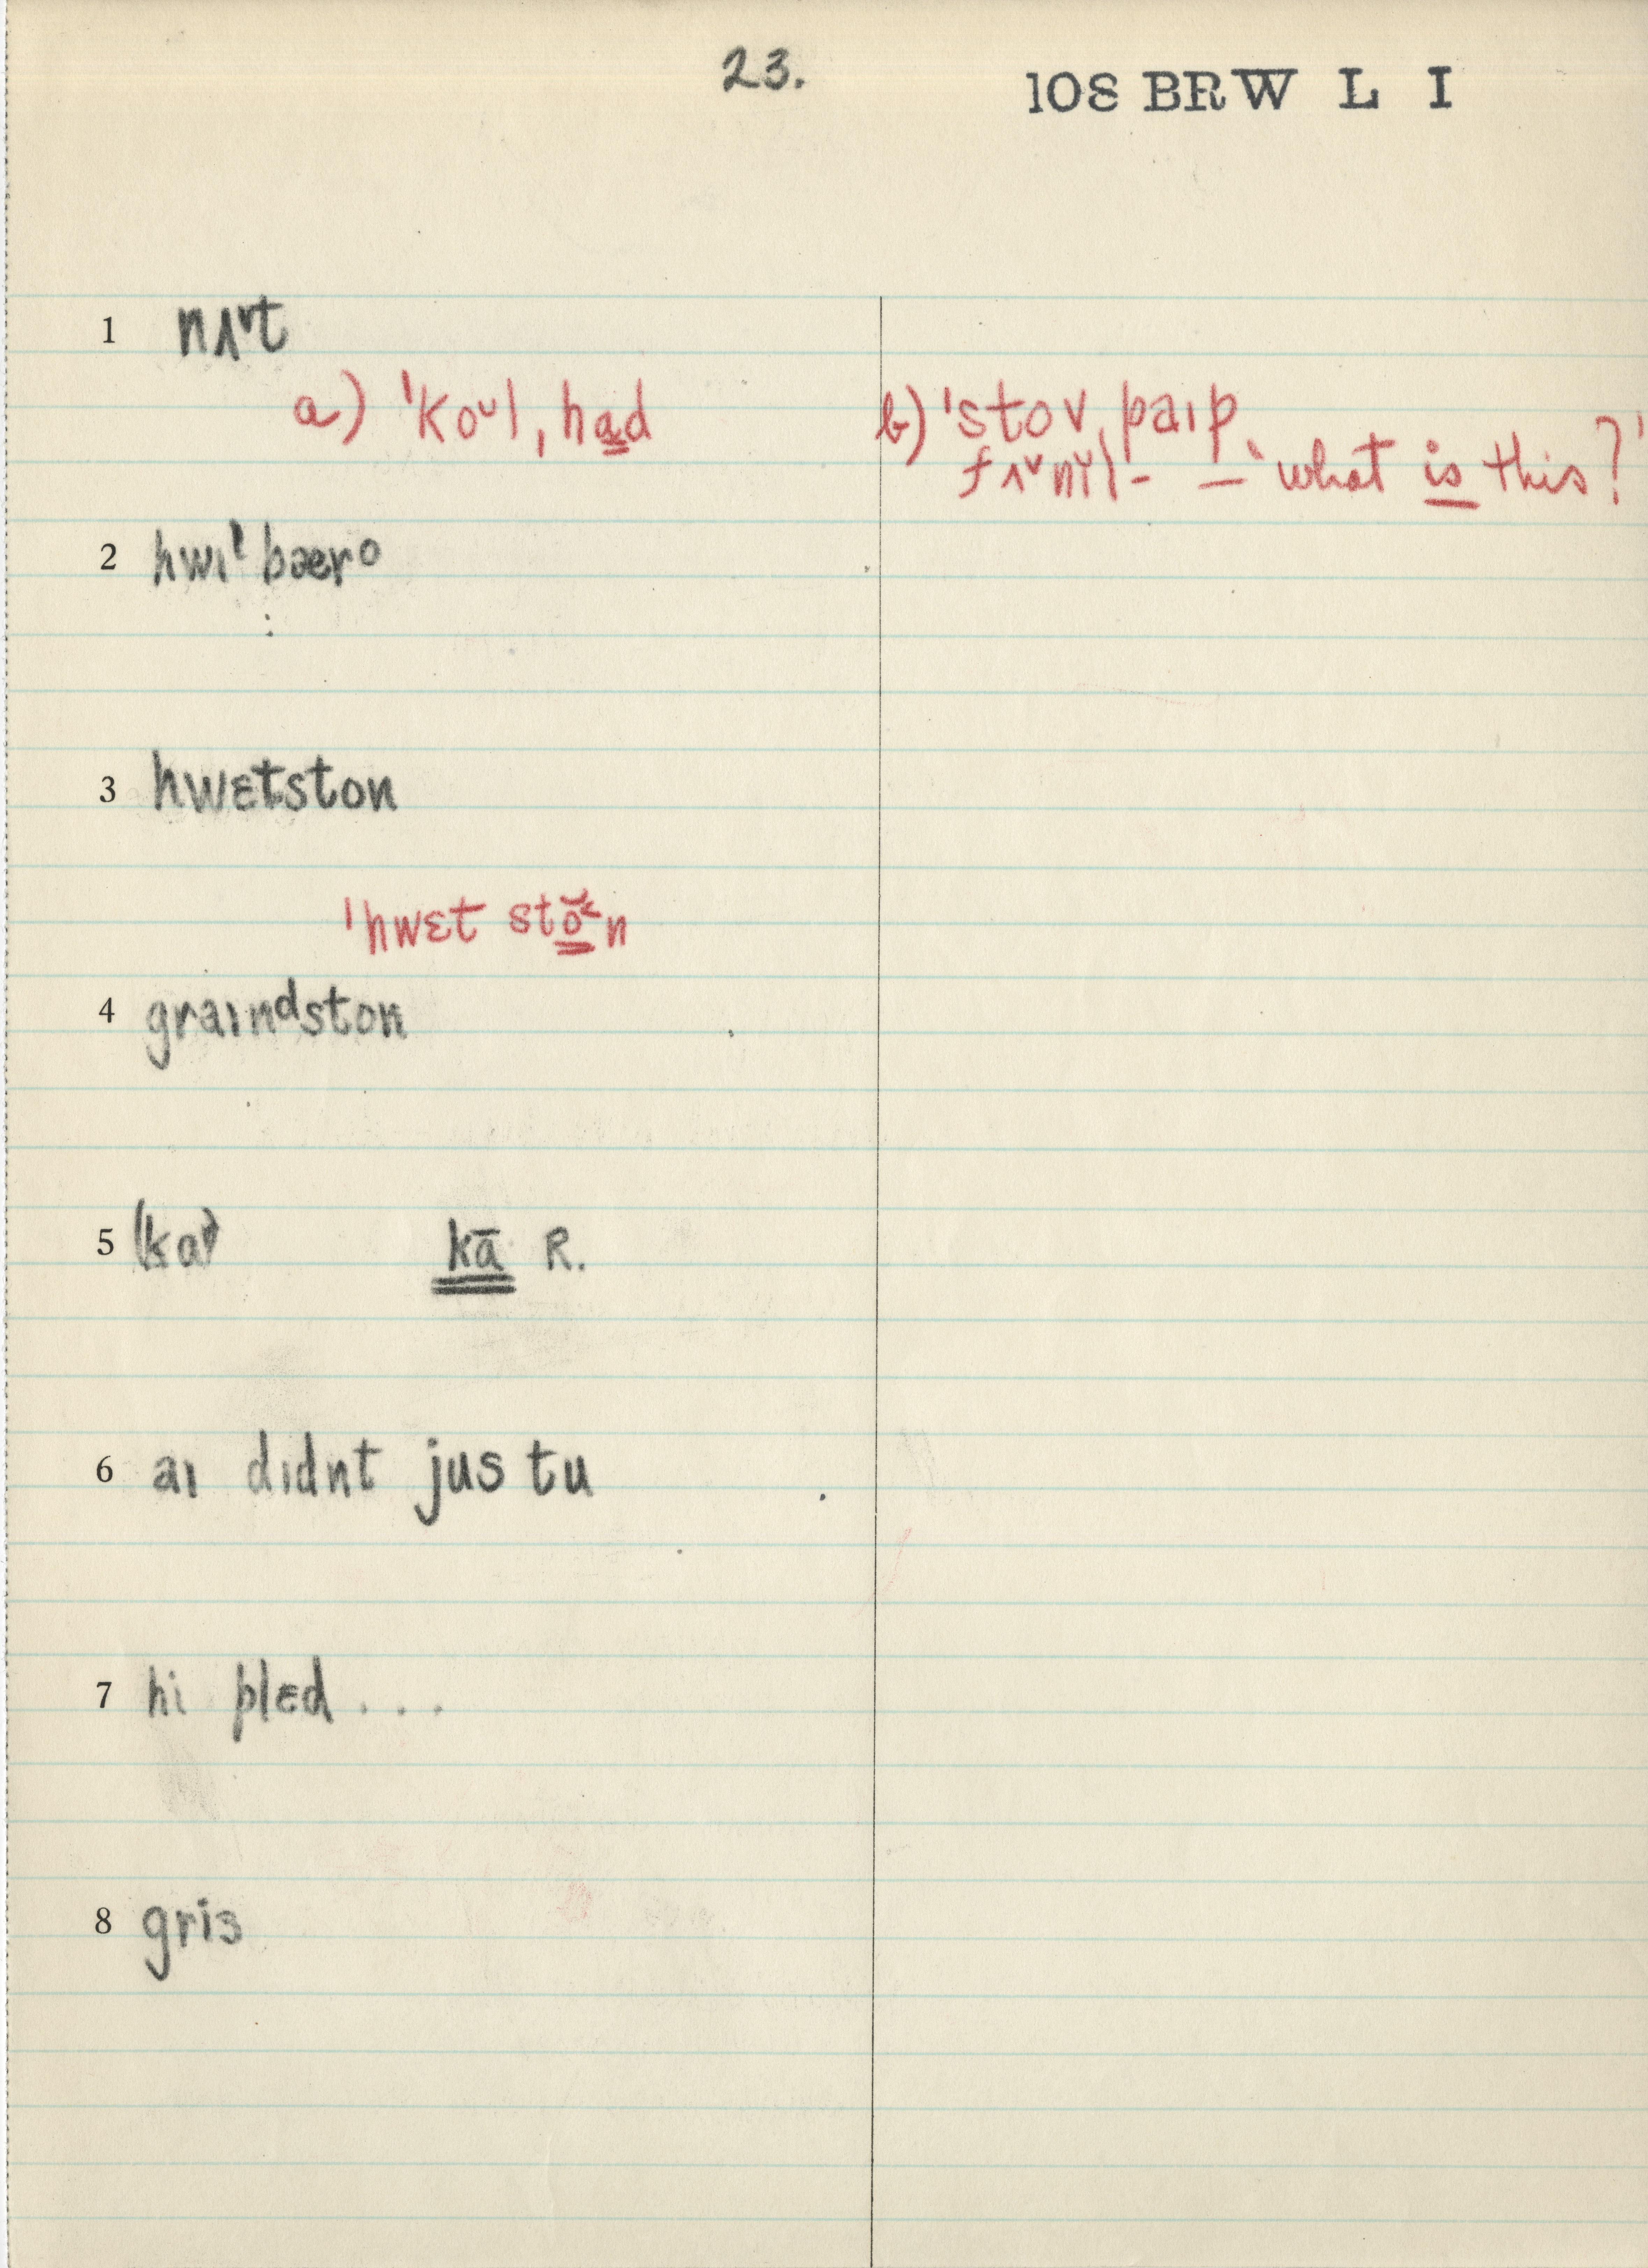 23.
108 BRW L I
1 nʌ˅t
a) ˈkoᵘl, had
b) ˈstov, paɪp
fʌ˅nɪ̆l- – ‘what is this?’
2 hwiˡbærᵒ
3 hwɛtston
ˈhwɛt stŏ˂n
4 graɪnᵈston
5 (ka) kā R.
6 aɪ dɪdnt jus tu
7 hi plɛd . . .
8 gris